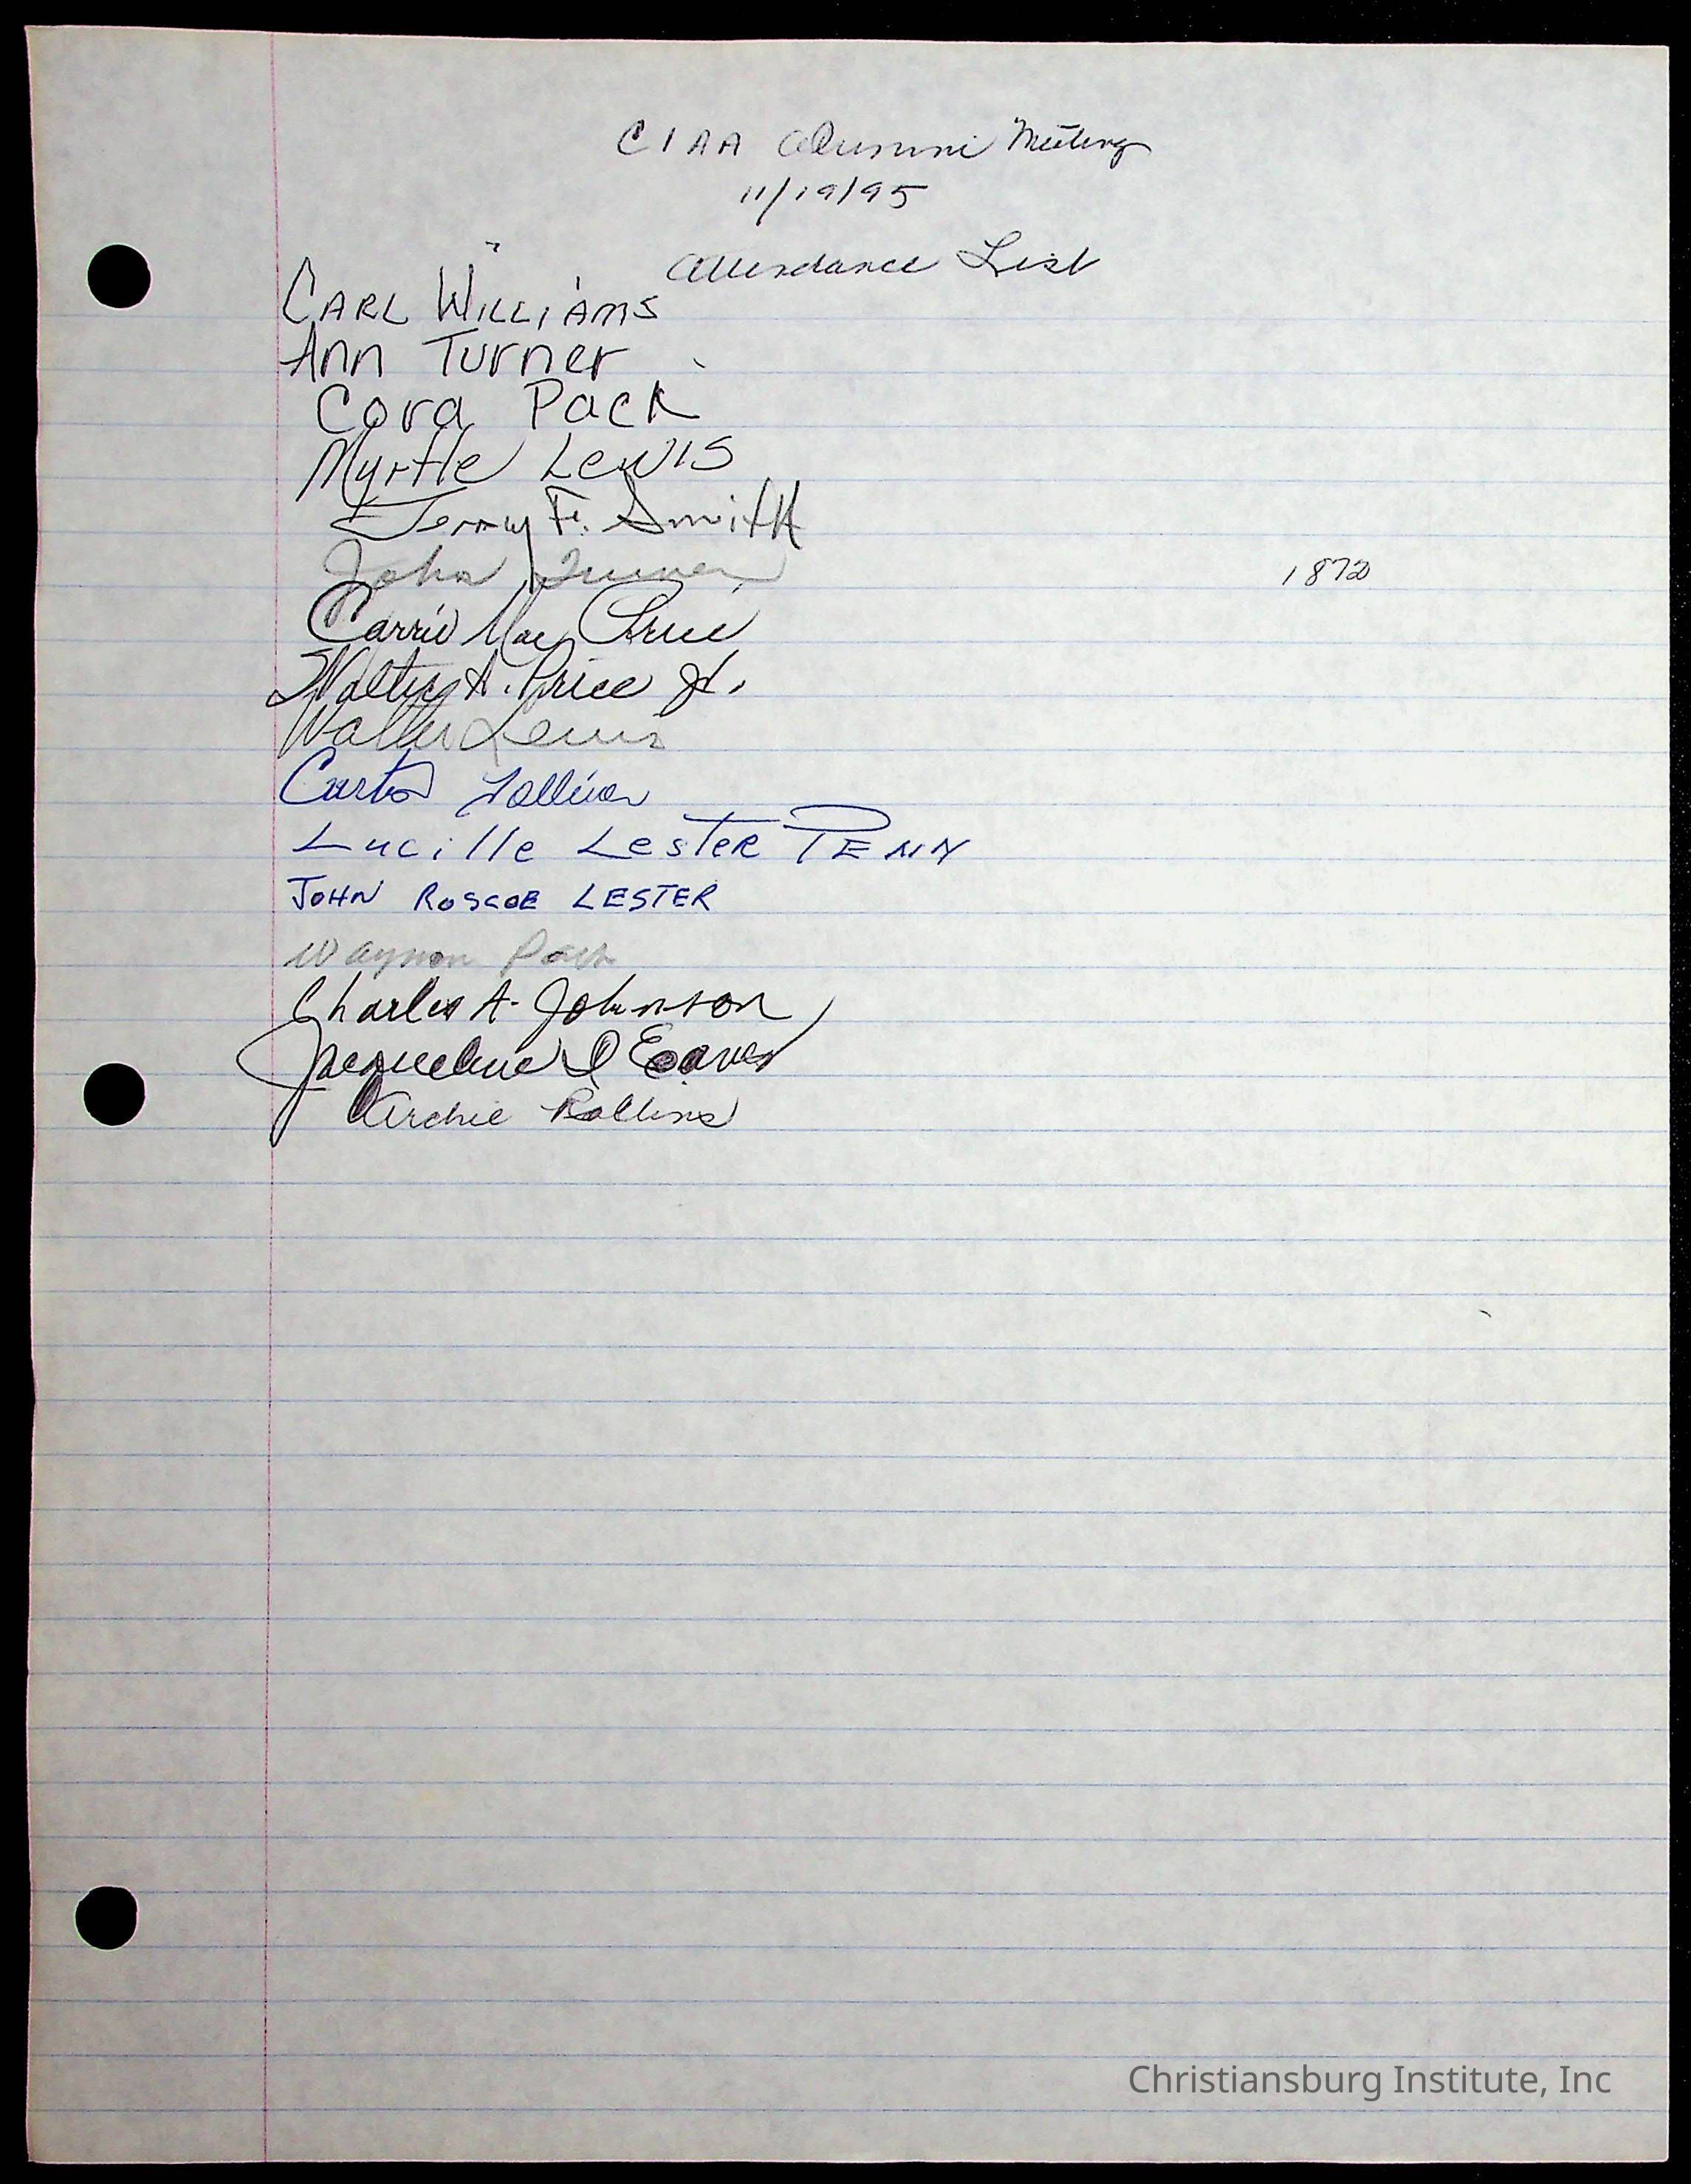 CIAA Alumni Meeting
11/19/95
Attendance List
CARL WILLIAMS
Ann Turner
Cora Pack
Myrtle Lewis
Jerry F. Smith
John
1872
Carrie Mae Price
Walter A. Price Jr.
Walter Lewis
Curtis
Lucille Lester PENN
JOHN ROSCOE LESTER
Waymon Pack
Charles A. Johnson
Jacqueline D Eaves
Archie Rollins
Christiansburg Institute, Inc